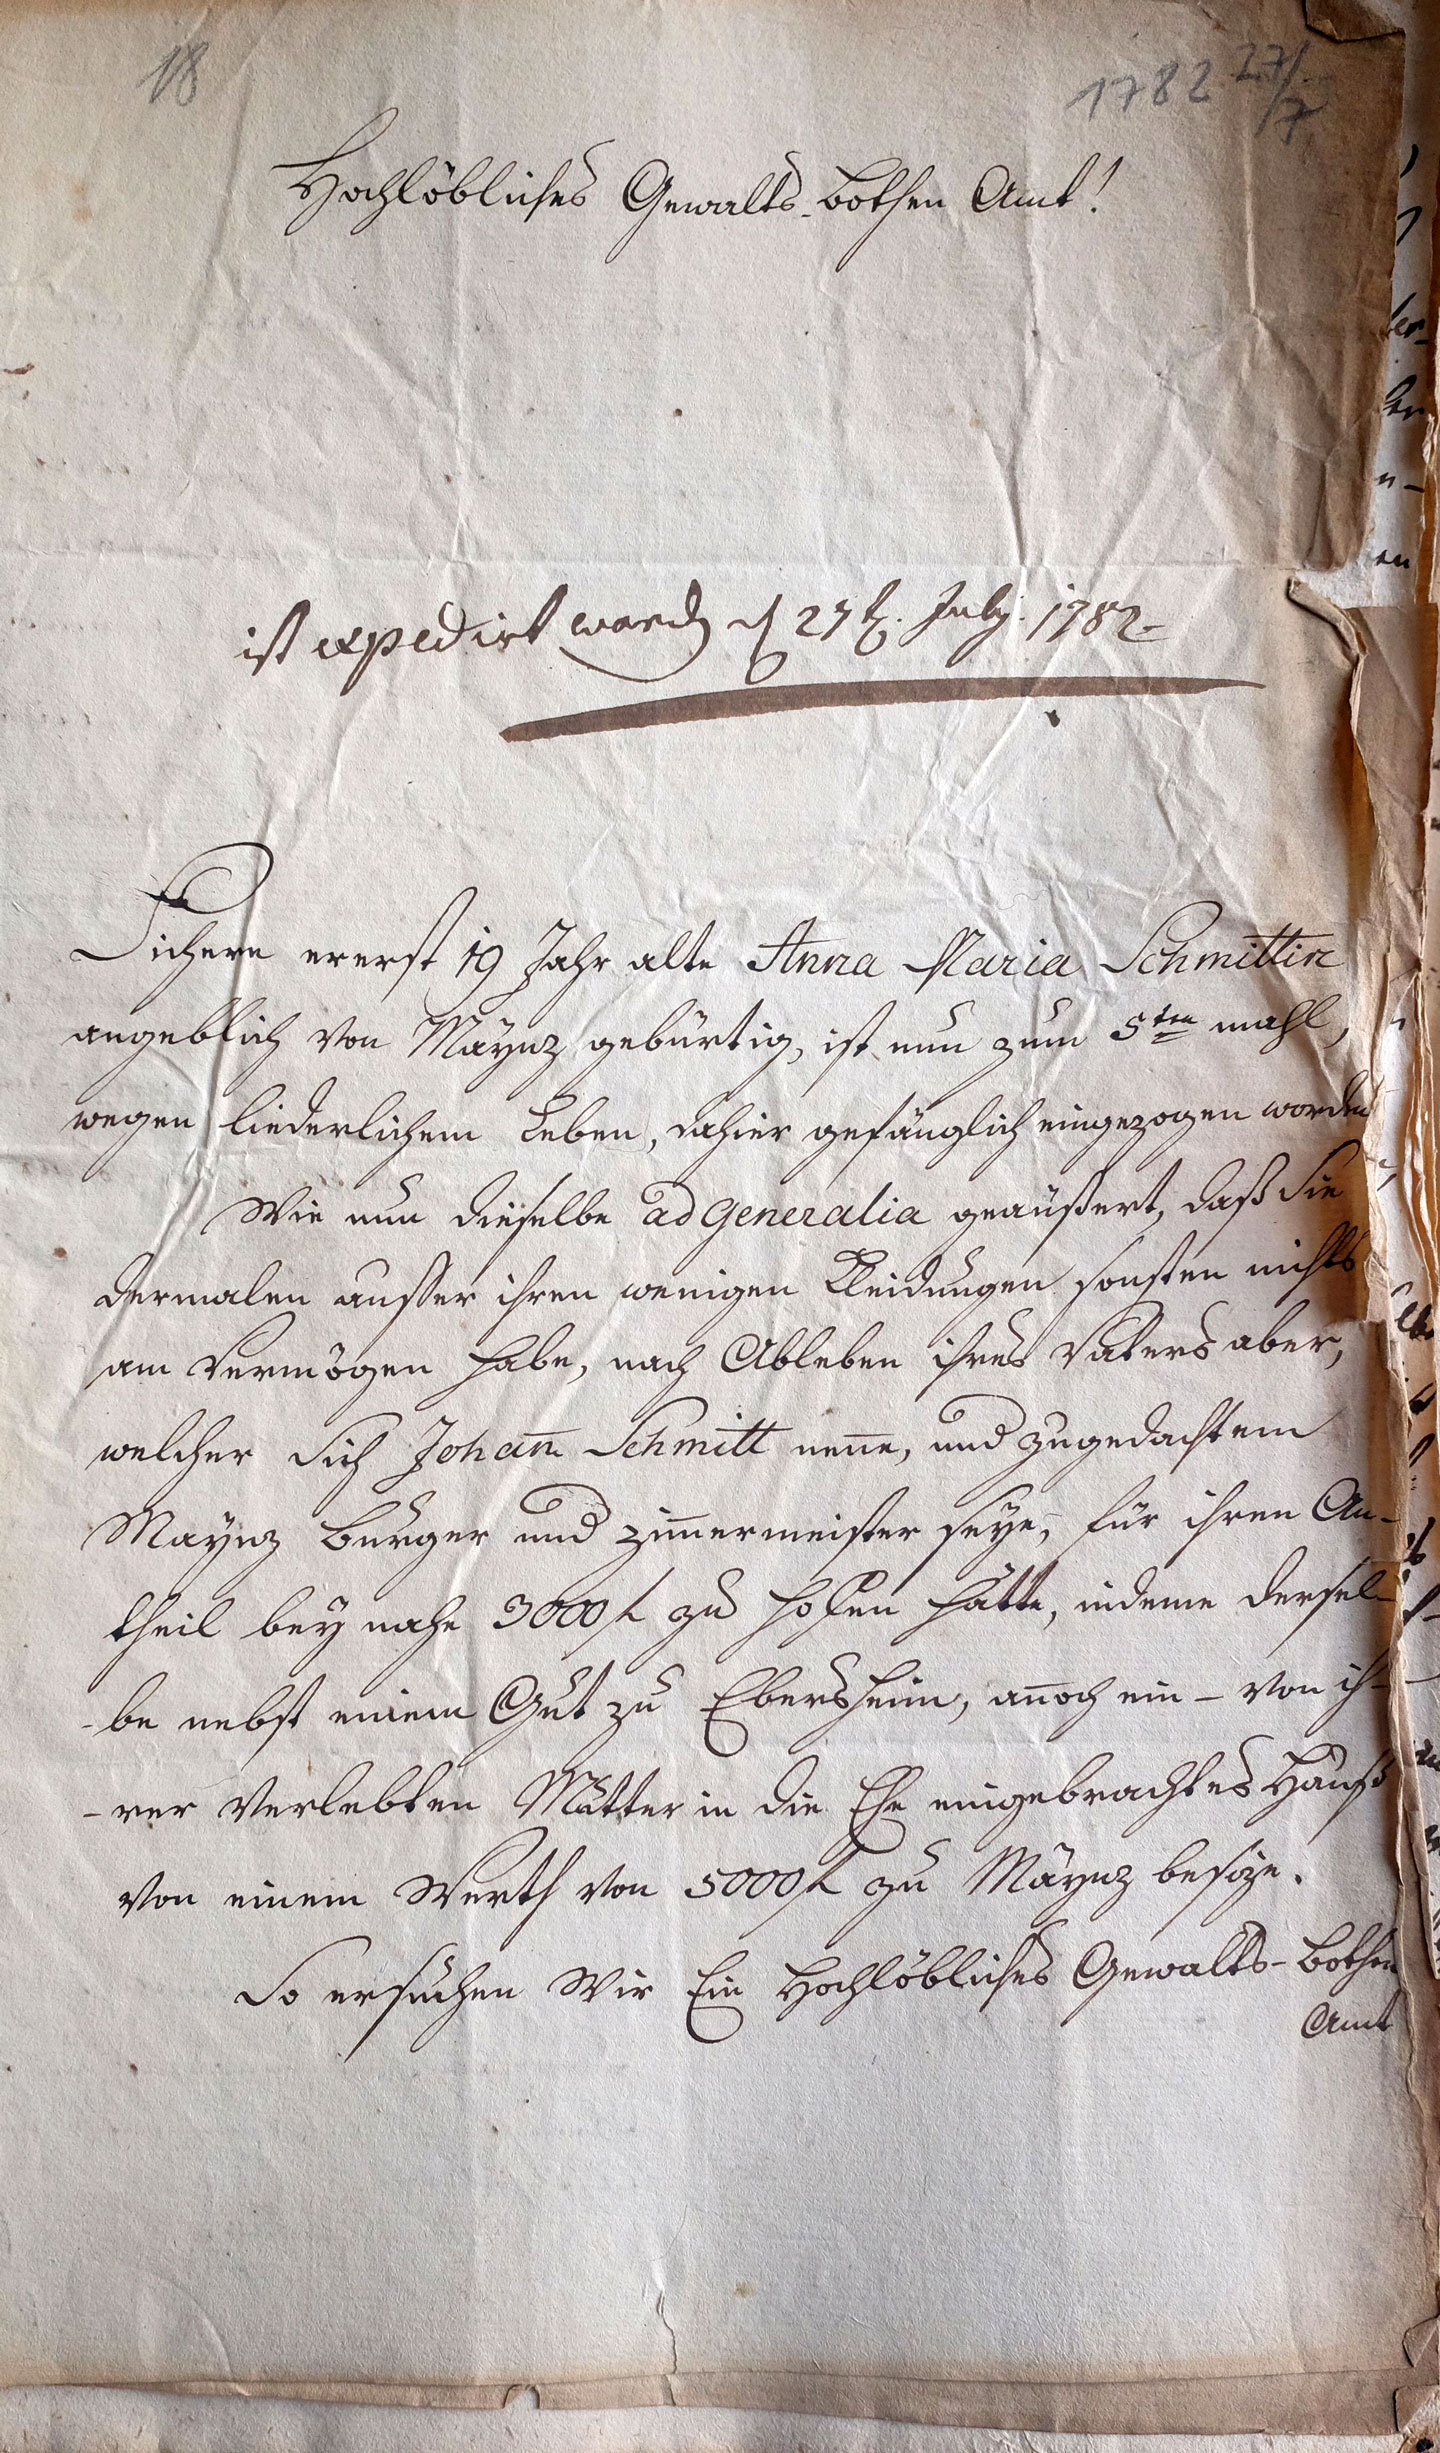 18
1782 27/7
Hochlöbliches Gewalts-bothen Amt!
ist expedirt word den 27t. July. 1782
Sichere ererst 19 Jahr alte Anna Maria Schmittin
angeblich von Maÿnz gebürtig, ist nun zum 5ten mahl,
wegen liederlichem Leben, dahier gefänglich eingezogen worden
Wie nun dieselbe ad generalia geäußert, daß sie
dermalen ausser ihren wenigen Kleidungen sonsten nichts
am Vermögen habe, nach Ableben ihres Vaters aber,
welcher sich Johan̄ Schmitt nen̄e, und zugedachtem
Maÿnz Burger und Zim̄ermeister seye, für ihren An-
theil bey nahe 3000 f zu hofen hätte, indeme dersel-
-be nebst einem Gut zu Ebersheim, an̄och ein - von ih-
-rer verlebten Mutter in die Ehe eingebrachtes Hauß
von einem Werth von 5000 f zu Maÿnz besize.
So ersuchen Wir Ein Hochlöbliches Gewalts-bothen
Amt